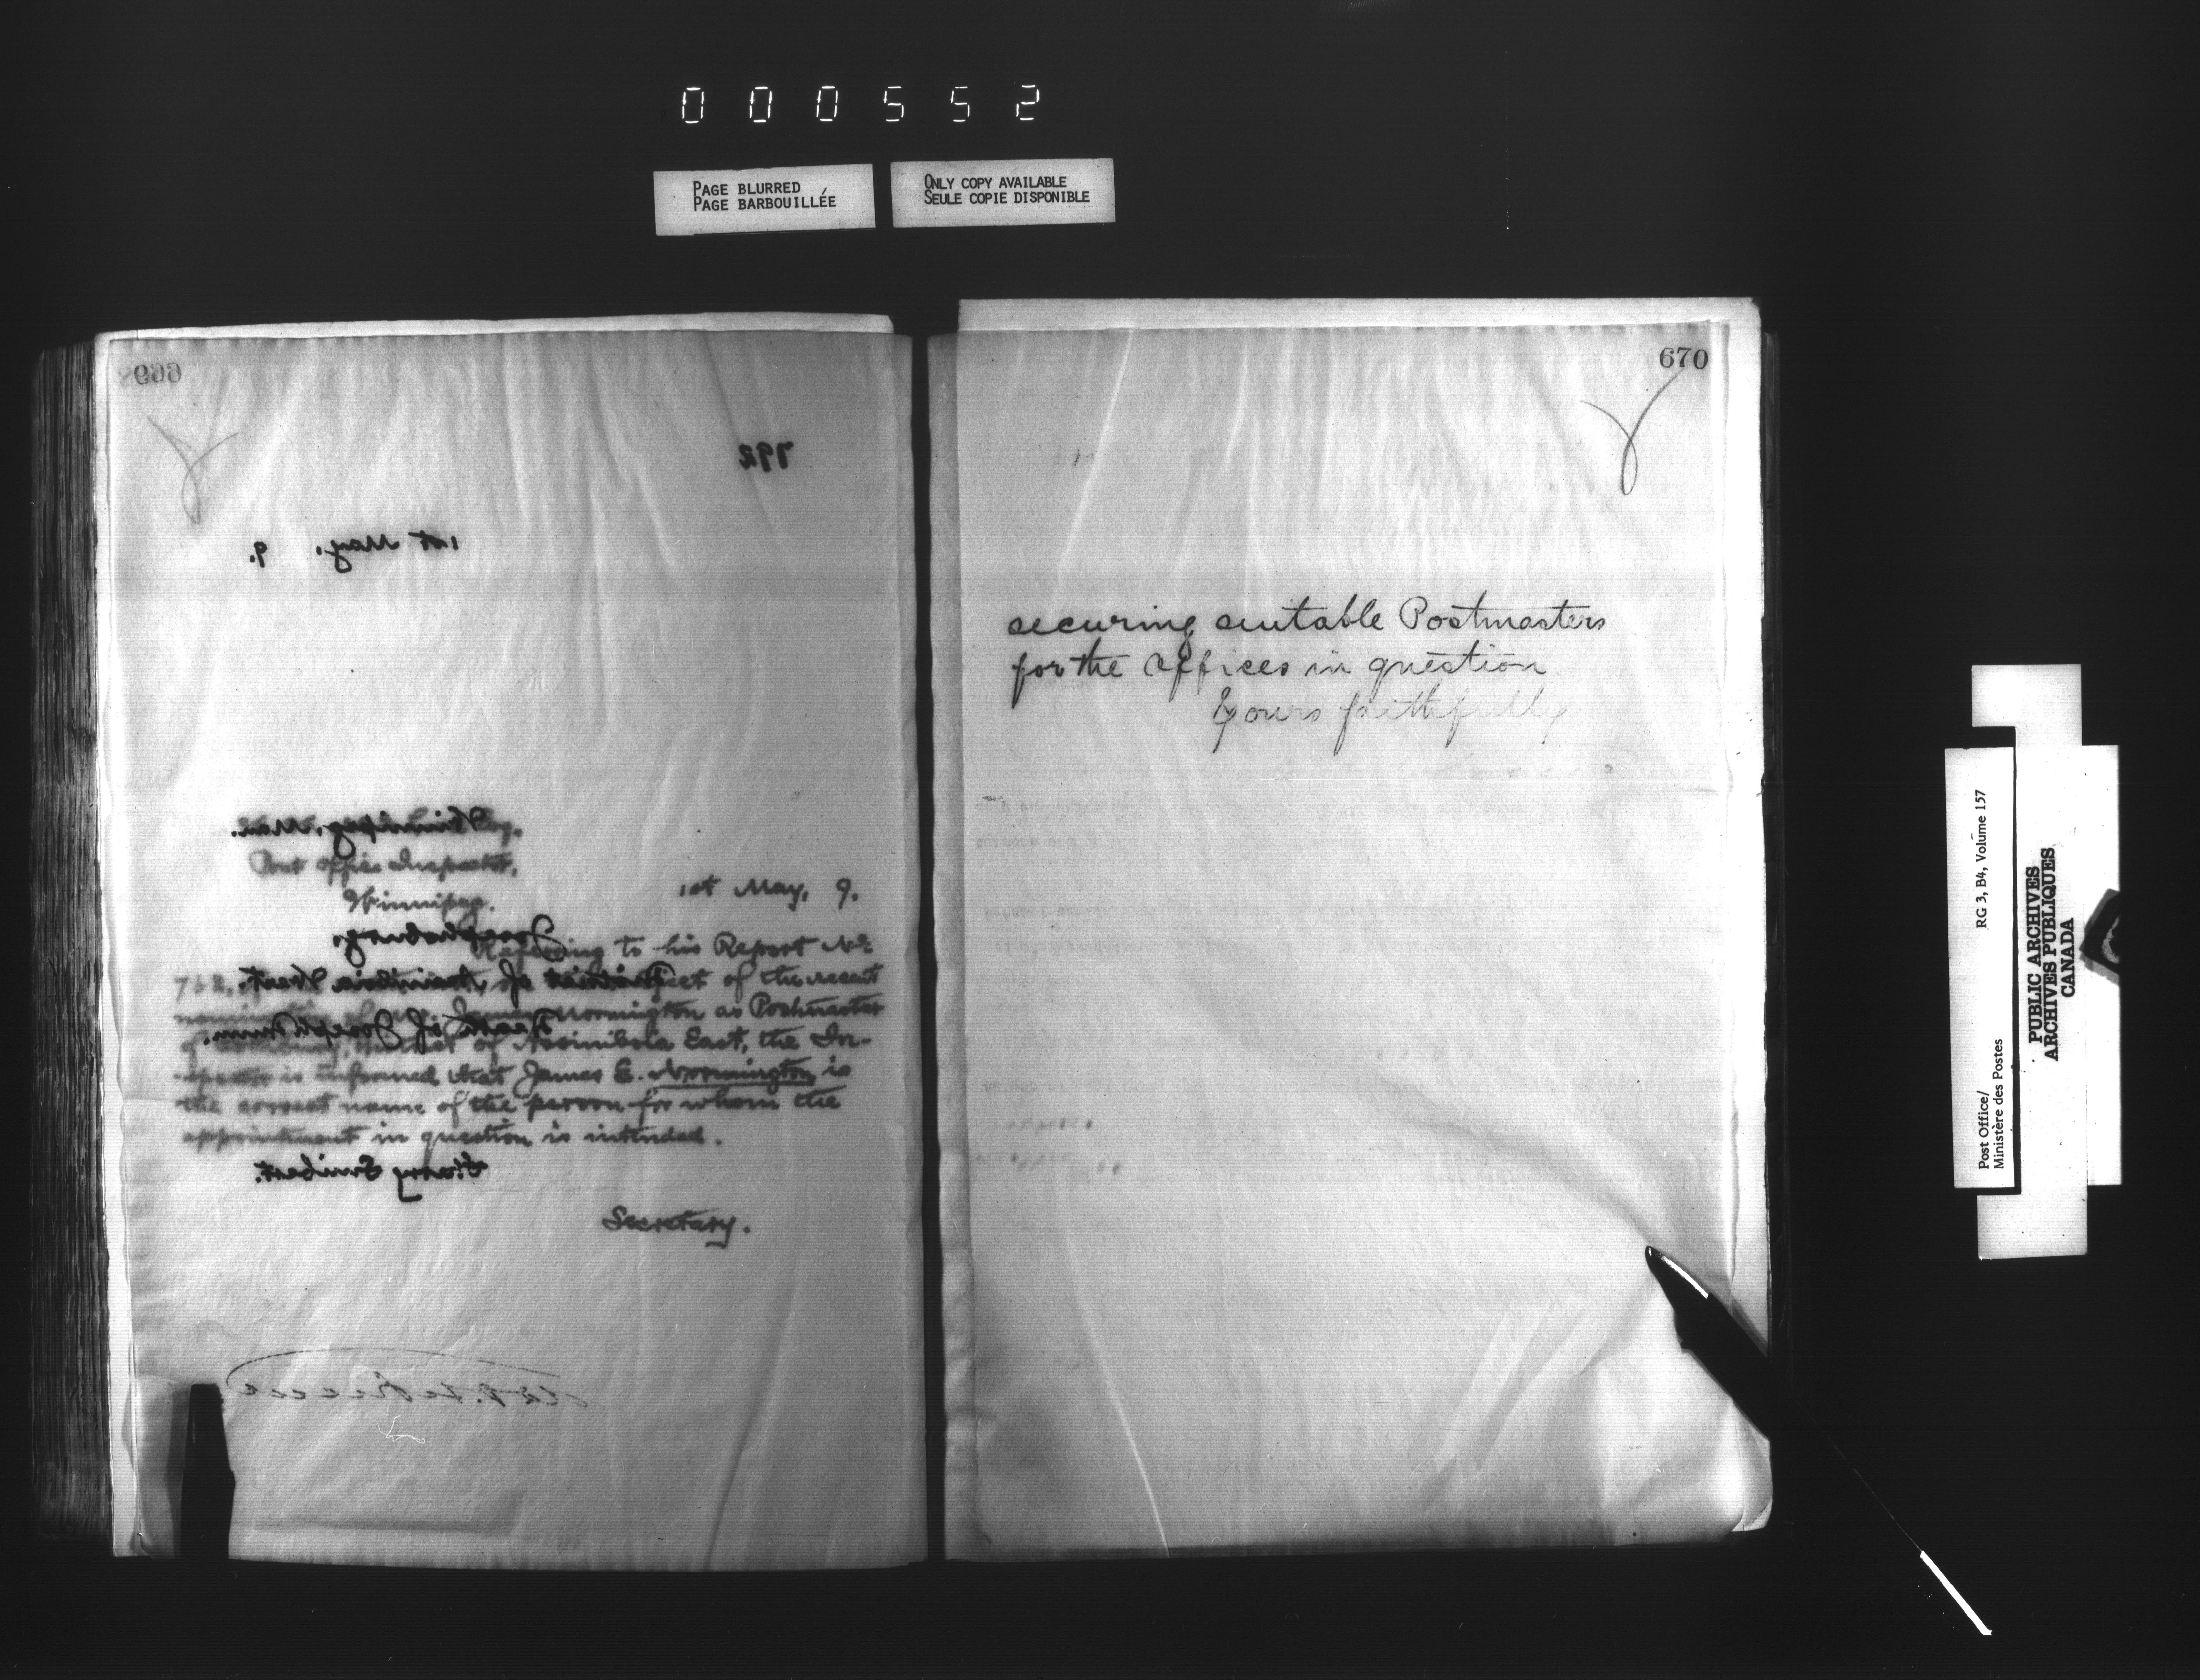 000552
PAGE BLURRED
PAGE BARBOUILLÉE
ONLY COPY AVAILABLE
SEULE COPIE DISPONIBLE
669
792
1st May, 9.
Winnipeg, Man.
Post Office Inspector,
Winnipeg.
1st May, 9.
Josephsburg,
Referring to his Report No.
of the recent
District of Assiniboia West.
Normington as Postmaster
Death of Joseph
of Assiniboia East, the In-
spector is informed that James E. Normington is
the correct name of the person for whom the
appointment in question is intended.
Harry
Secretary.
670
securing suitable Postmasters
for the offices in question
Yours faithfully
Post Office/
Ministère des Postes
RG 3, B4, Volume 157
PUBLIC ARCHIVES
ARCHIVES PUBLIQUES
CANADA